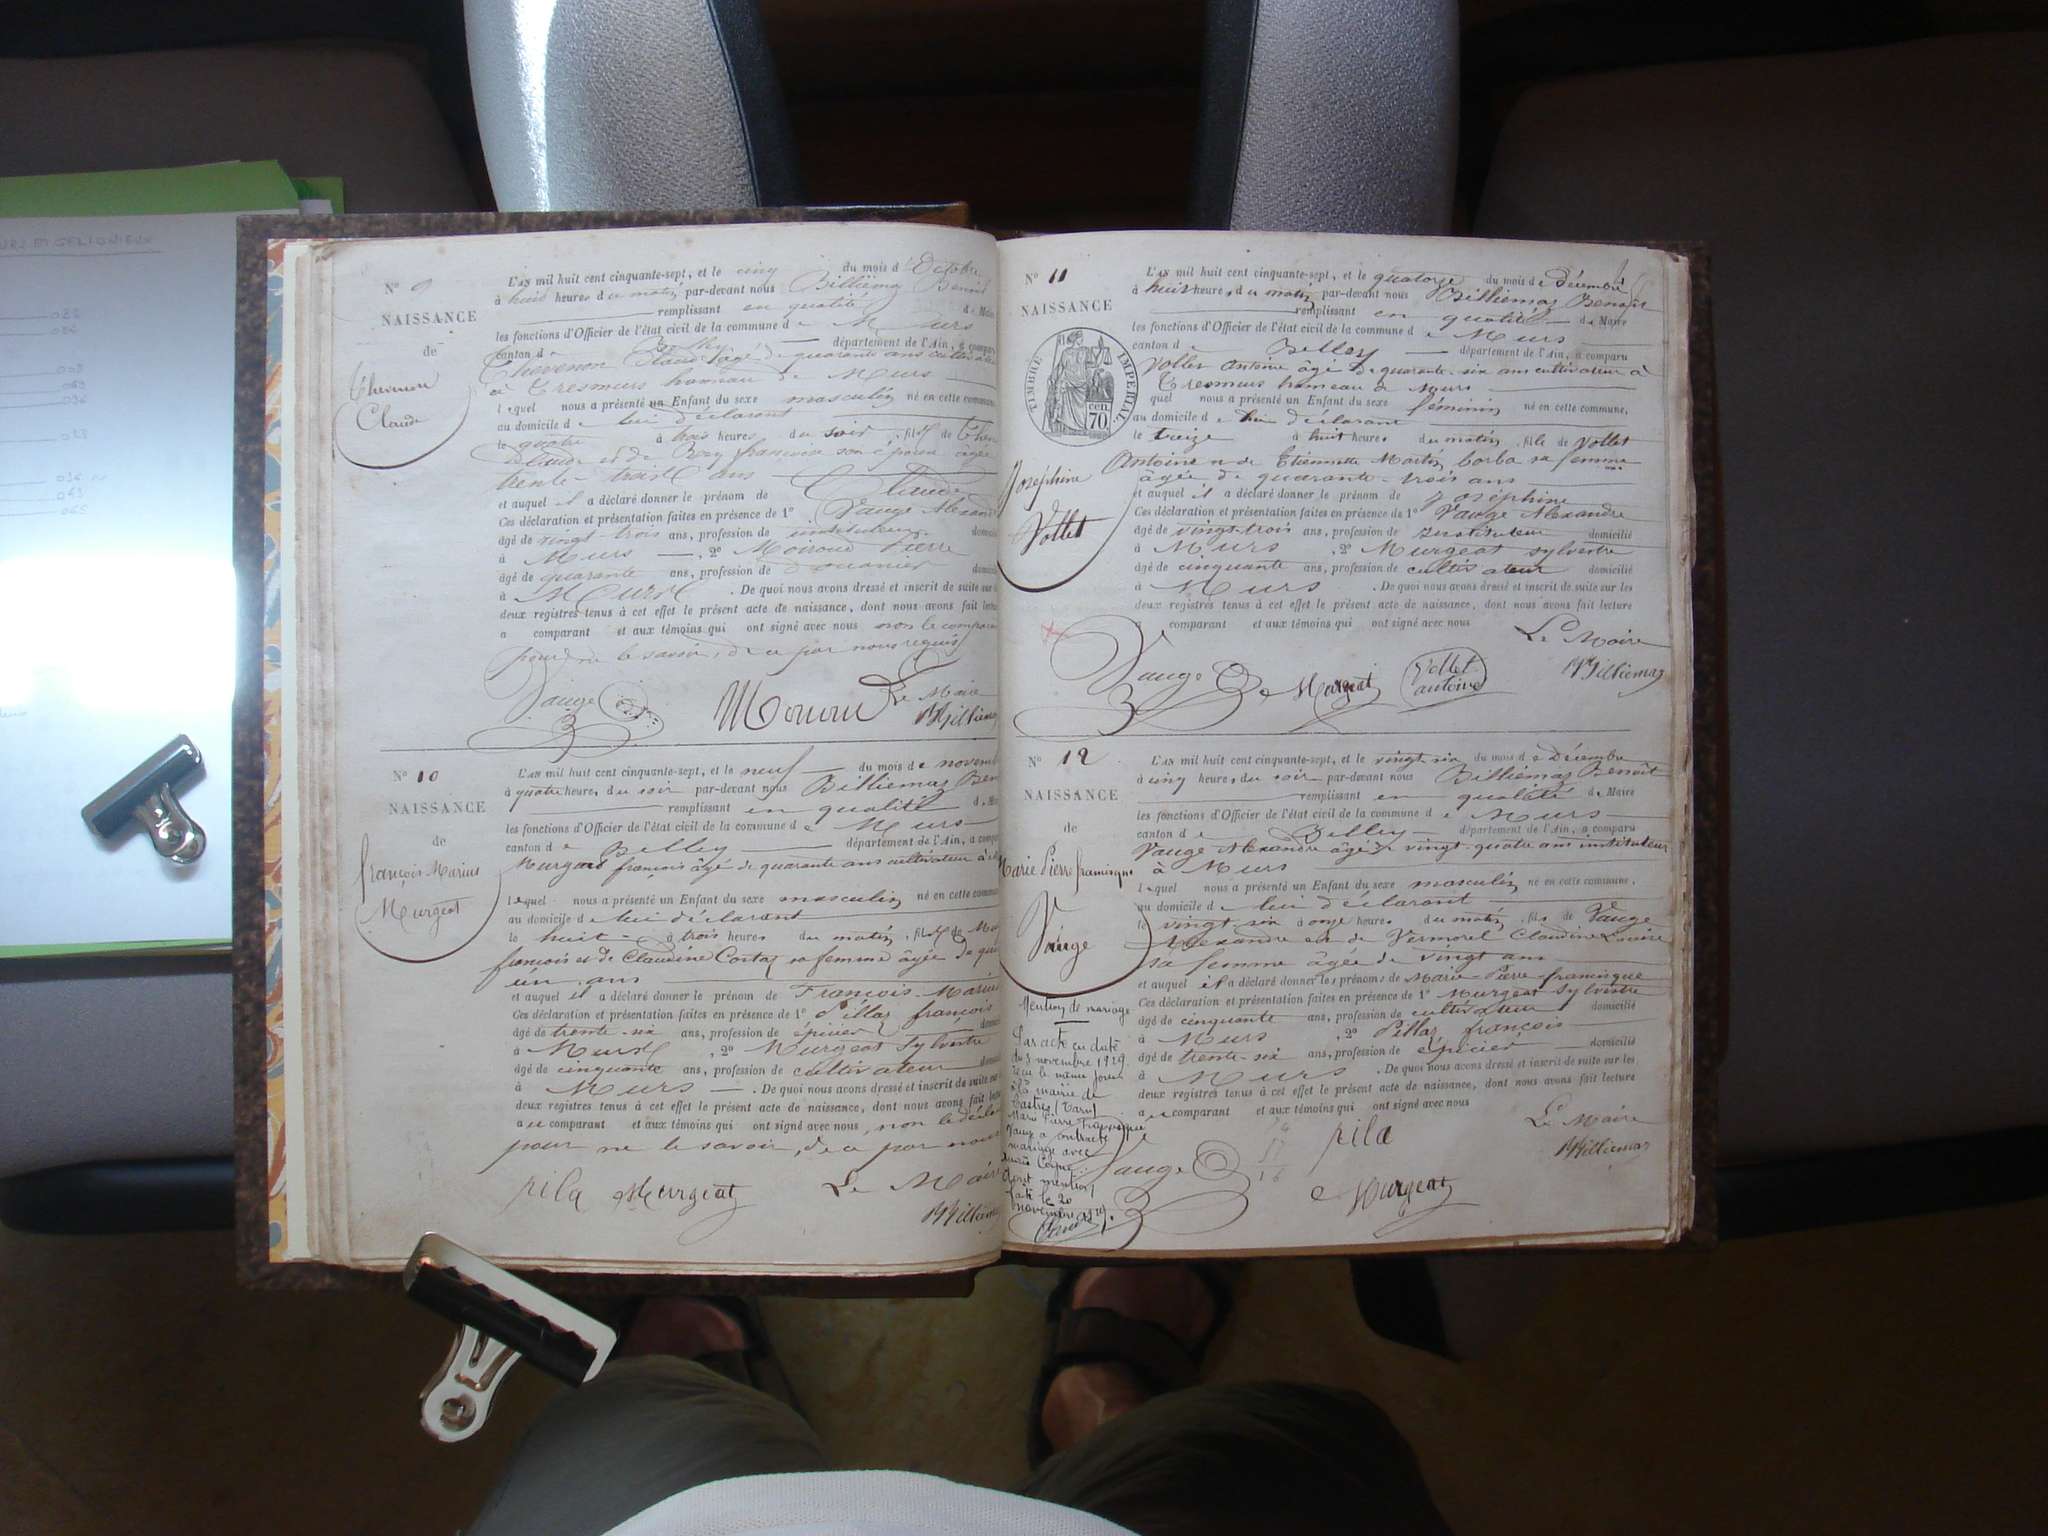 N° 9
NAISSANCE
de
Chevenon
Claude
L'AN mil huit cent cinquante-sept, et le cinq du mois d'Octobre
à huit heures du matin par-devant nous Billiemaz Benoit
remplissant en qualité de Maire
les fonctions d'Officier de l'état civil de la commune de Murs
canton de Belley département de l'Ain, a comparu
Chevenon Claude âgé de quarante ans cultivateur
à Tresmurs hameau de Murs
lequel nous a présenté un Enfant du sexe masculin né en cette commune
au domicile de lui déclarant
le quatre à trois heures du soir, fils de
Claude et de françoise son épouse âgée
trente-trois ans
et auquel il a déclaré donner le prénom de Claude
Ces déclaration et présentation faites en présence de 1° Vauge Alexandre
âgé de vingt-trois ans, profession de instituteur
à Murs, 2° Moiroud Pierre
âgé de quarante ans, profession de
à Murs. De quoi nous avons dressé et inscrit de suite sur
deux registres tenus à cet effet le présent acte de naissance, dont nous avons fait lecture
a comparant et aux témoins qui ont signé avec nous non le comparant
pour ne le savoir, de ce par nous requis
Vauge
Le Maire
Billiemaz
N° 10
NAISSANCE
de
françois Marius
Murgeat
L'AN mil huit cent cinquante-sept, et le neuf du mois de novembre
à quatre heures du soir par-devant nous Billiemaz Ben
remplissant en qualité de
les fonctions d'Officier de l'état civil de la commune de Murs
canton de Belley département de l'Ain, a comparu
françois âgé de quarante ans cultivateur à
lequel nous a présenté un Enfant du sexe masculin né en cette commune
au domicile de lui déclarant
le huit à trois heures du matin, fils de
françois et de Claudine sa femme âgée de
un ans
et auquel il a déclaré donner le prénom de François Marius
Ces déclaration et présentation faites en présence de 1° Pillaz françois
âgé de trente-six ans, profession de épicier
à Murs, 2° Murgeat Sylvestre
âgé de cinquante ans, profession de cultivateur
à Murs. De quoi nous avons dressé et inscrit de suite sur
deux registres tenus à cet effet le présent acte de naissance, dont nous avons fait
au comparant et aux témoins qui ont signé avec nous, non le
pour ne le savoir, de ce par nous
pila Murgeat Le Maire
Billiemaz
N° 11
NAISSANCE
TIMBRE IMPERIAL
70 cen.
Joséphine
Vollet
L'AN mil huit cent cinquante-sept, et le quatorze du mois de Décembre
à huit heures du matin par-devant nous Billiemaz Benoit
remplissant en qualité de Maire
les fonctions d'Officier de l'état civil de la commune de Murs
canton de Belley département de l'Ain, a comparu
Vollet Antoine âgé de quarante-six ans cultivateur à
Tresmurs hameau de Murs
quel nous a présenté un Enfant du sexe féminin né en cette commune,
au domicile de lui déclarant
le treize à huit heures du matin, fille de Vollet
Antoine de Etiennette Martin sa femme
âgée de quarante-trois ans
et auquel il a déclaré donner le prénom de Joséphine
Ces déclaration et présentation faites en présence de 1° Vauge Alexandre
âgé de vingt-trois ans, profession de Instituteur domicilié
à Murs, 2° Murgeat Sylvestre
âgé de cinquante ans, profession de cultivateur domicilié
à Murs. De quoi nous avons dressé et inscrit de suite sur les
deux registres tenus à cet effet le présent acte de naissance, dont nous avons fait lecture
a comparant et aux témoins qui ont signé avec nous
Le Maire
Vauge Murgeat Vollet antoine Billiemaz
N° 12
NAISSANCE
de
Marie Pierre framisque
Vauge
L'AN mil huit cent cinquante-sept, et le vingt six du mois de Décembre
à cinq heures du soir par-devant nous Billiemaz Benoit
remplissant en qualité de Maire
les fonctions d'Officier de l'état civil de la commune de Murs
canton de Belley département de l'Ain, a comparu
Vauge Alexandre âgé de vingt-quatre ans instituteur
à Murs
lequel nous a présenté un Enfant du sexe masculin né en cette commune,
au domicile de lui déclarant
le vingt-six à onze heures du matin, fils de Vauge
Alexandre et de Vermorel Claudine Louise
sa femme âgée de vingt ans
et auquel il a déclaré donner les prénoms de Marie-Pierre-framisque
Ces déclaration et présentation faites en présence de 1° Murgeat Sylvestre
âgé de cinquante ans, profession de cultivateur domicilié
à Murs, 2° Pillaz françois
âgé de trente-six ans, profession de épicier domicilié
à Murs. De quoi nous avons dressé et inscrit de suite sur les
deux registres tenus à cet effet le présent acte de naissance, dont nous avons fait lecture
au comparant et aux témoins qui ont signé avec nous
Le Maire
Vauge pila Billiemaz
Murgeat
Mention de mariage
Par acte en date
du 5 novembre 1929
reçu le même jour
à la mairie de
Castres (Tarn)
Marie Pierre
Vauge a contracté
mariage avec
mention
faite le 20
novembre